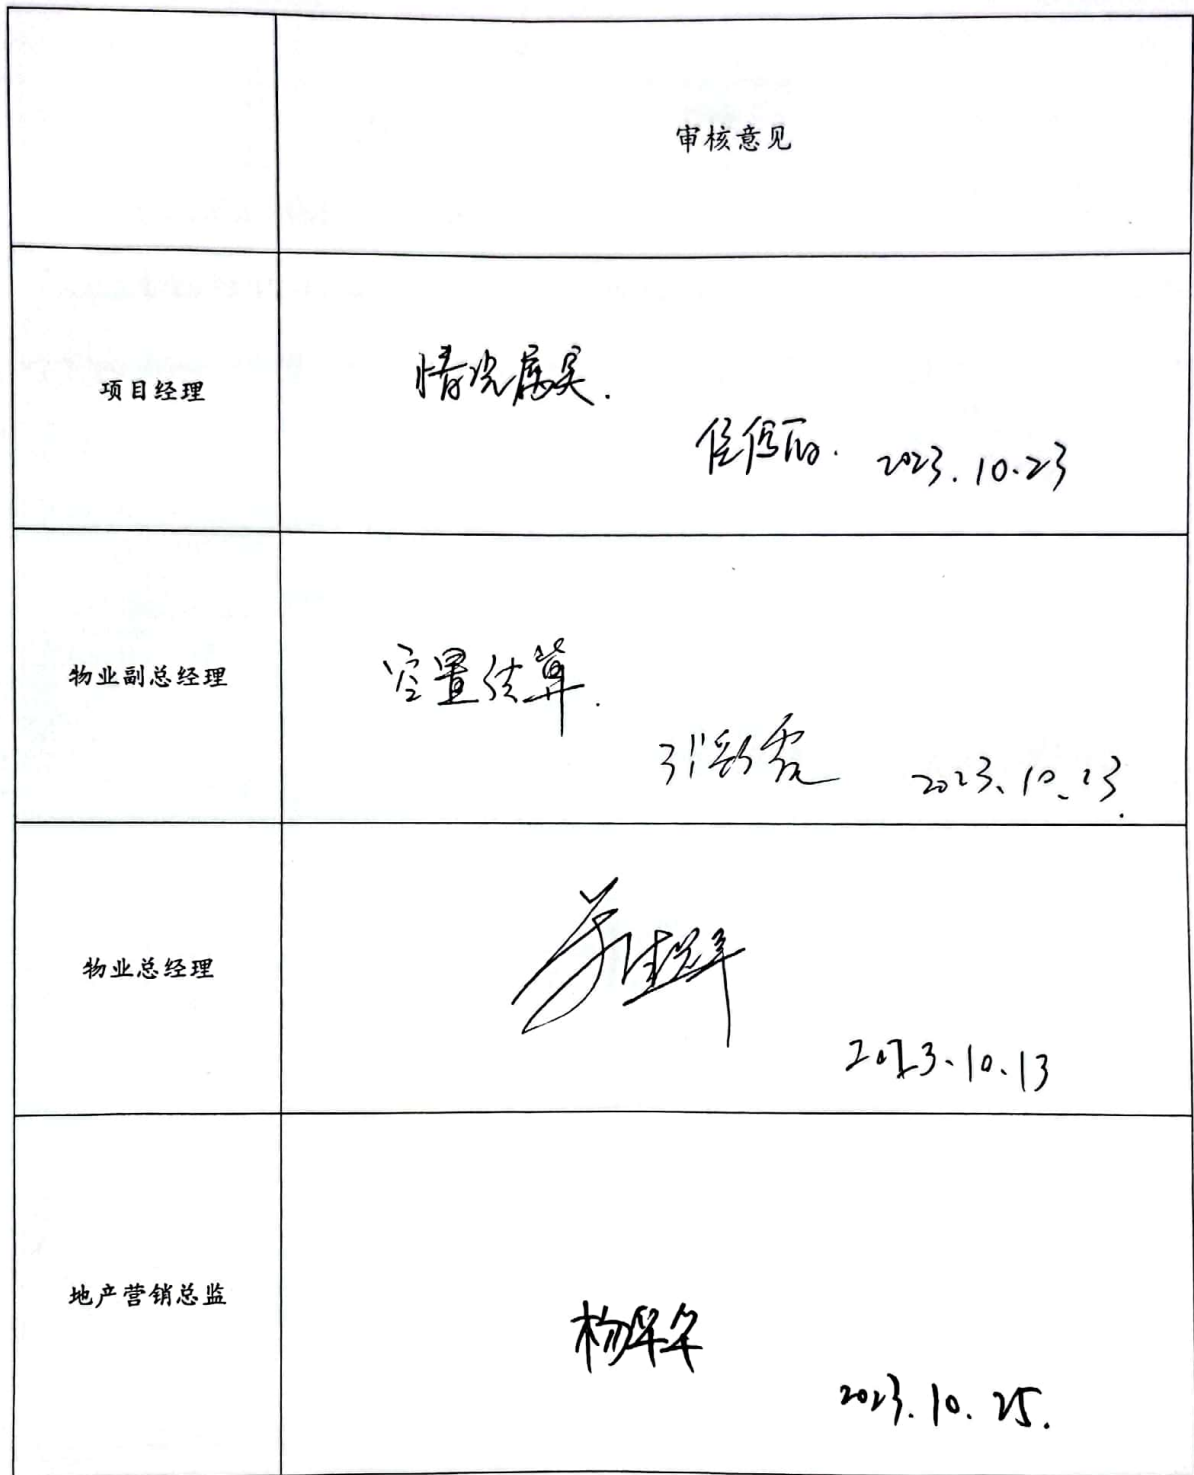 审核意见
项目经理
情况属实.
2023.10.23
物业副总经理
空置结算.
2023.10.23.
物业总经理
2023.10.13
地产营销总监
杨华华
2023.10.25.